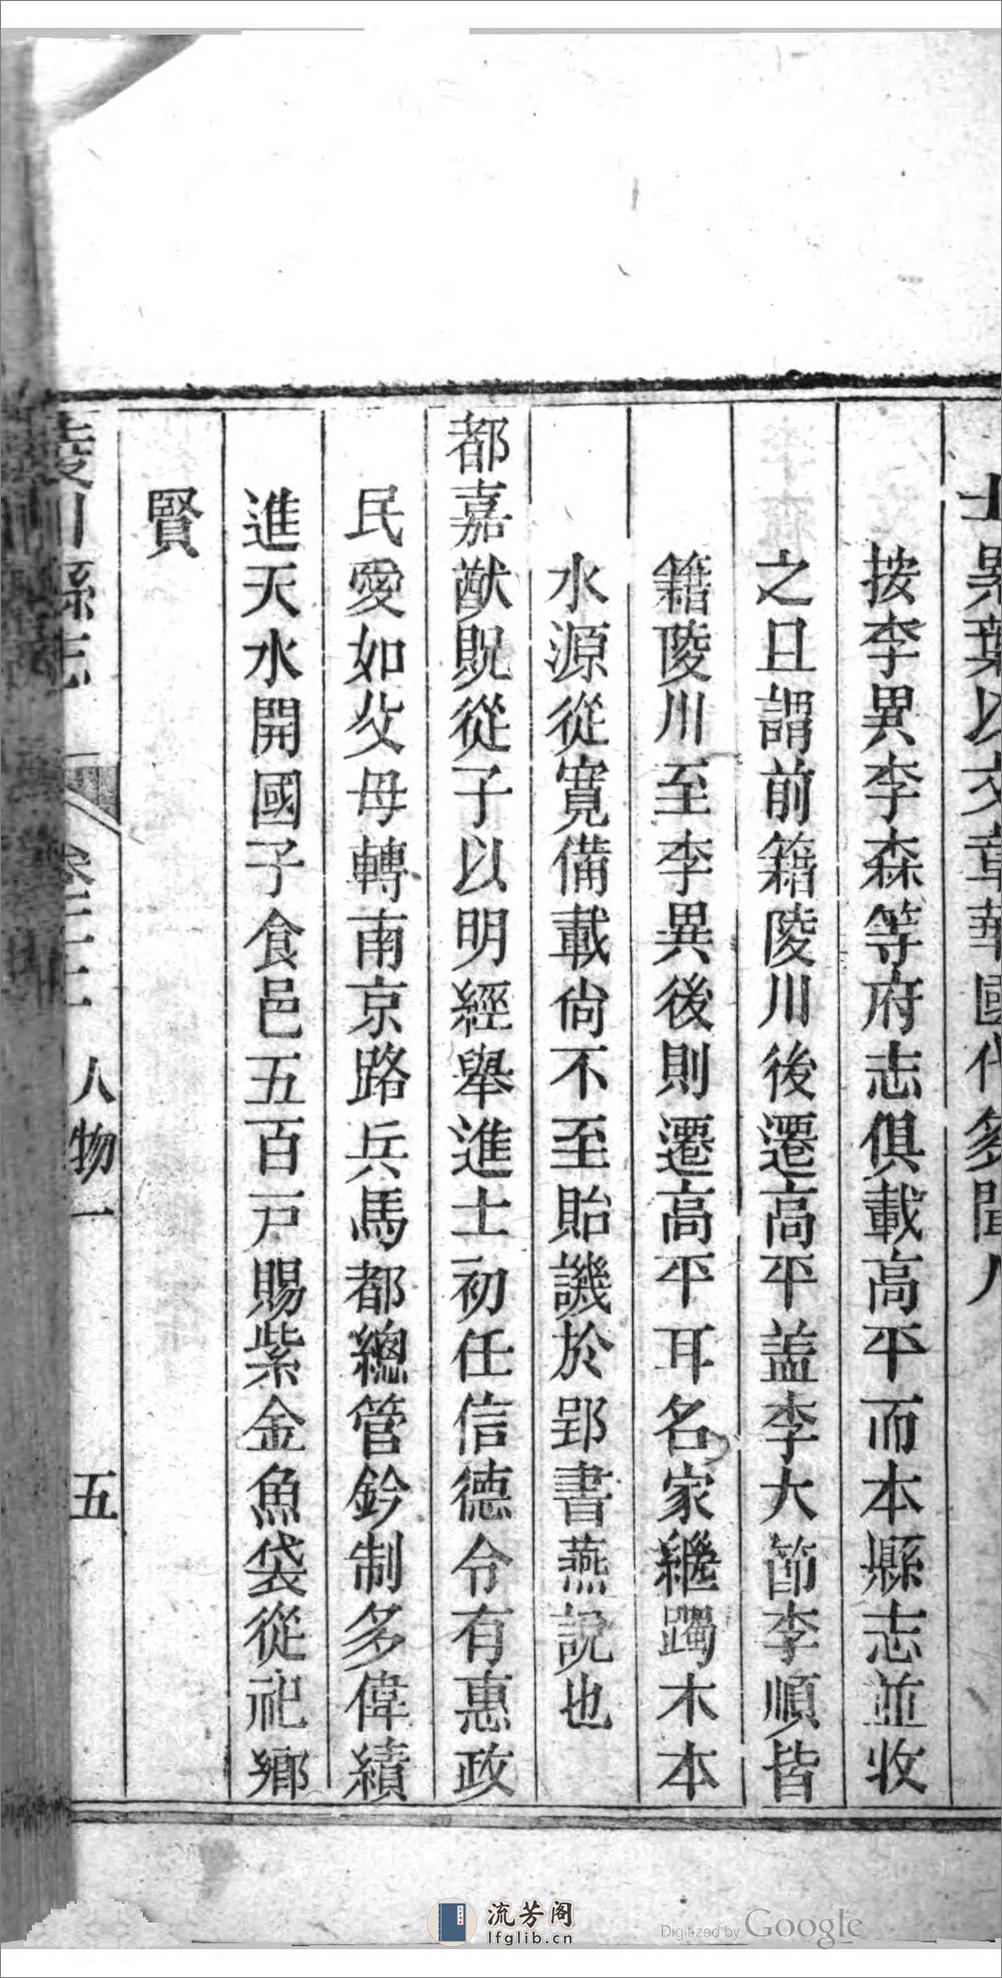 士異葉以文章華國代多聞人
按李異李森等府志俱載高平而本縣志並收
之且謂前籍陵川後遷高平盖李大節李順皆
籍陵川至李異後則遷高平耳名家繼躅木本
水源從寬備載尙不至貽譏於郢書燕說也
都嘉猷貺從子以明經舉進士初任信德令有惠政
民愛如父母轉南京路兵馬都總管鈐制多偉績
進天水開國子食邑五百戸賜紫金魚袋從祀鄉
賢
陵川縣志 卷二十一 人物一 五
流芳阁
lfglib.cn
Digitized by Google